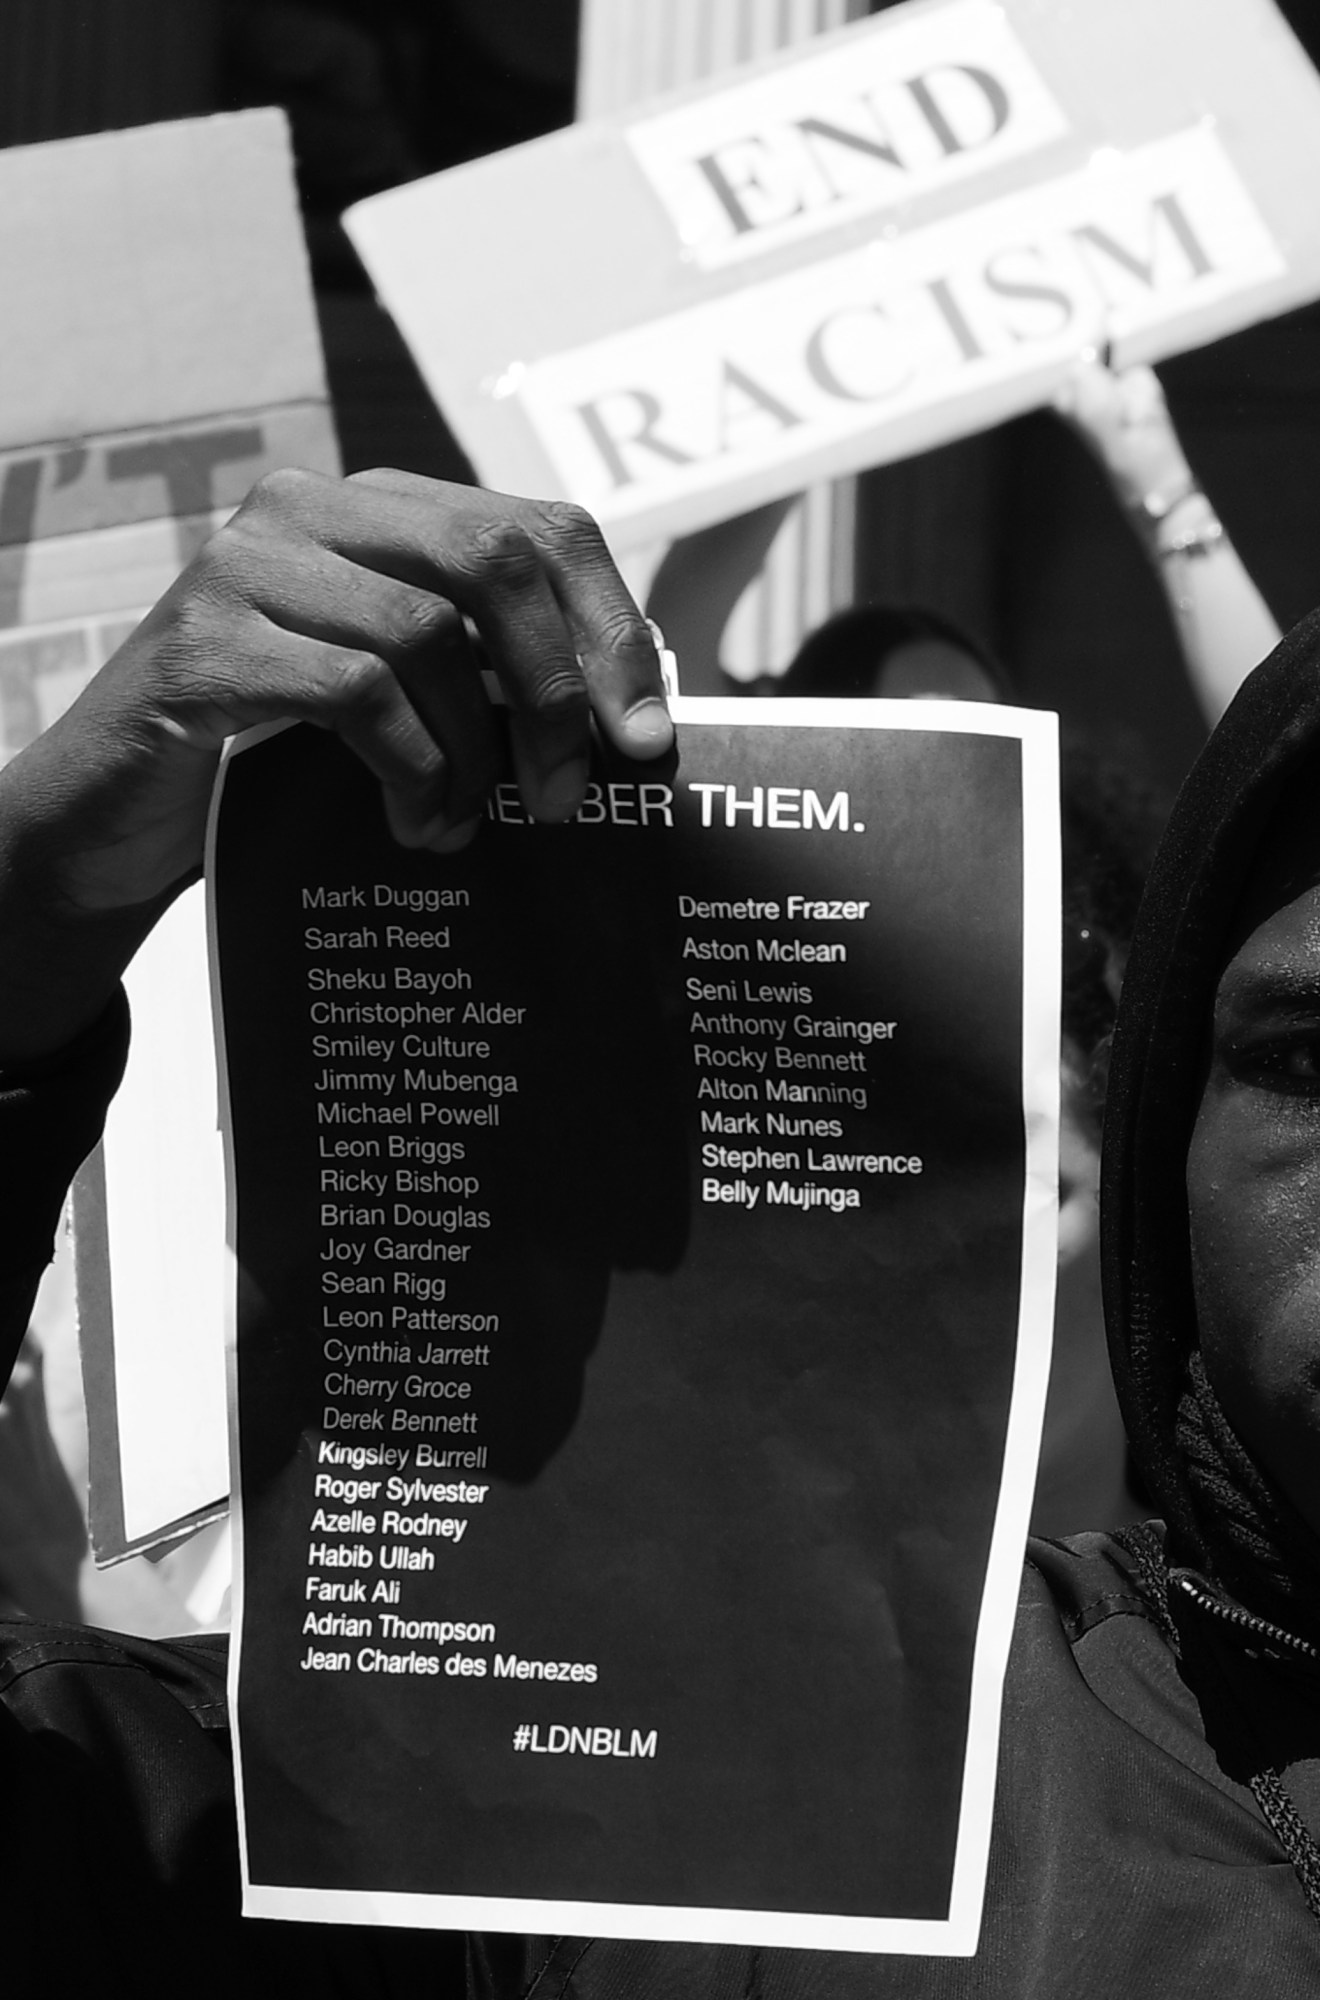 END
RACISM
'T
EMBER THEM.
Mark Duggan
Sarah Reed
Sheku Bayoh
Christopher Alder
Smiley Culture
Jimmy Mubenga
Michael Powell
Leon Briggs
Ricky Bishop
Brian Douglas
Joy Gardner
Sean Rigg
Leon Patterson
Cynthia Jarrett
Cherry Groce
Derek Bennett
Kingsley Burrell
Roger Sylvester
Azelle Rodney
Habib Ullah
Faruk Ali
Adrian Thompson
Jean Charles des Menezes
Demetre Frazer
Aston Mclean
Seni Lewis
Anthony Grainger
Rocky Bennett
Alton Manning
Mark Nunes
Stephen Lawrence
Belly Mujinga
#LDNBLM